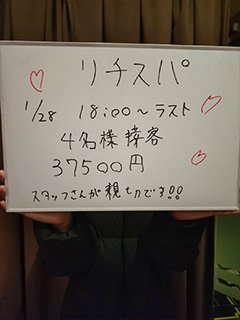 リチスパ
1/28 18:00～ラスト
4名様接客
37500円
スタッフさんが親切です!!